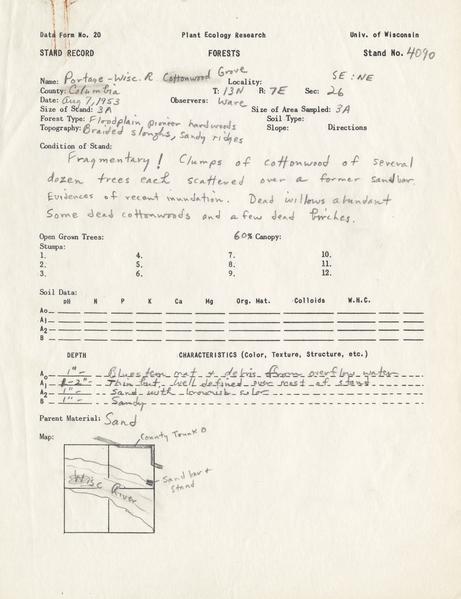 Data Form No. 20 Plant Ecology Research Univ. of Wisconsin
STAND RECORD FORESTS Stand No. 4090
Name: Portage-Wisc. R Cottonwood Grove Locality: SE:NE
County: Columbia T: 13N R: 7E Sec: 26
Date: Aug 7, 1953 Observers: Ware
Size of Stand: 3A Size of Area Sampled: 3A
Forest Type: Floodplain pioneer hardwoods Soil Type:
Topography: Braided sloughs, sandy ridges Slope: Directions
Condition of Stand:
Fragmentary! Clumps of cottonwood of several
dozen trees each scattered over a former sandbar.
Evidences of recent inundation. Dead willows abundant
Some dead cottonwoods and a few dead birches.
Open Grown Trees: 60% Canopy:
Stumps:
1. 4. 7. 10.
2. 5. 8. 11.
3. 6. 9. 12.
Soil Data:
pH N P K Ca Mg Org. Mat. Colloids W.H.C.
Ao
A1
A2
B
DEPTH CHARACTERISTICS (Color, Texture, Structure, etc.)
Ao 1"- Bluestem mat & debris from overflow water
A1 1-2"- Thin but well defined over most of stand
A2 1"- Sand with brownish color
B 1"- Sandy
Parent Material: Sand
Map:
County Trunk O
Sand bar &
stand
Wisc River